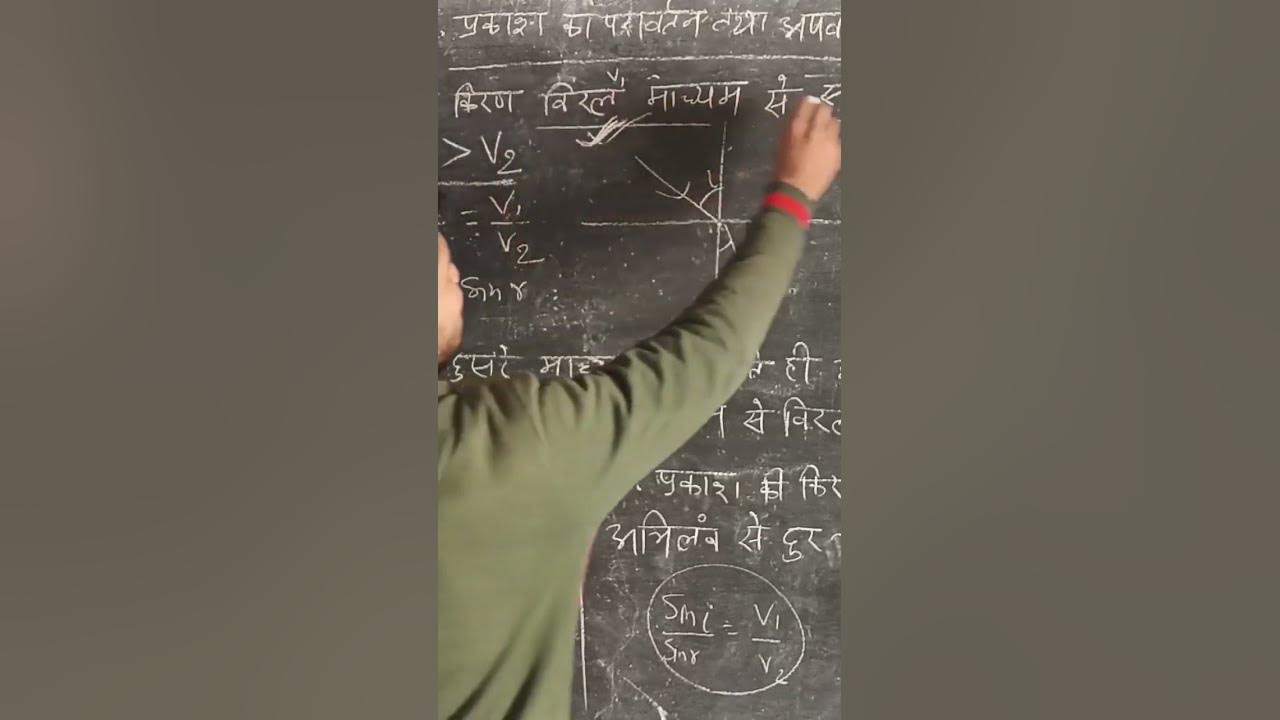 प्रकाश का परावर्तन तथा अपव
किरण विरल माध्यम से
V₁
> V₂
= V₁
V₂
Sin r
i
दुसरे माध्य ते ही
से विरल
प्रकाश की किर
अभिलंब से दुर
Sin i = V₁
Sin r V₂